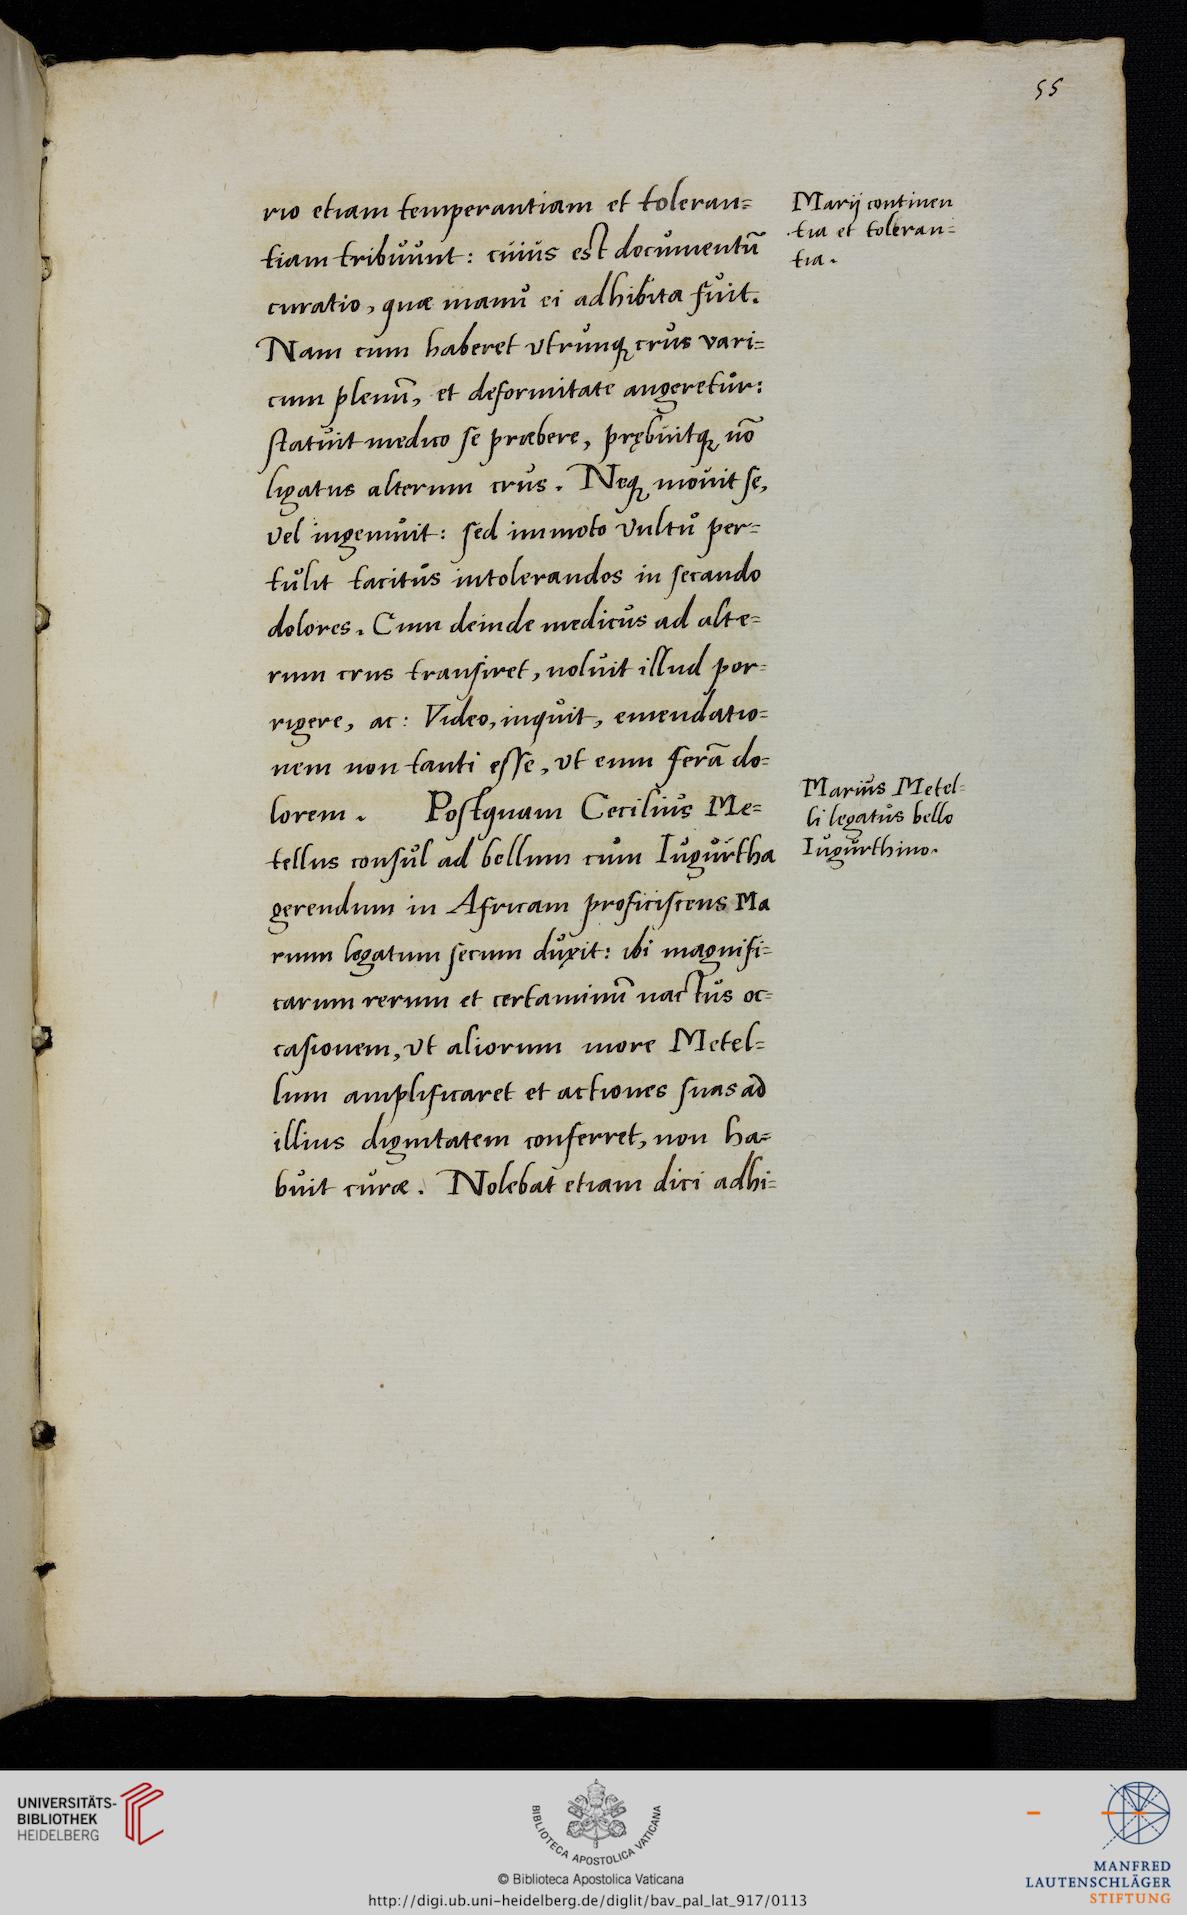 55
rio etiam temperantiam et toleran=
tiam tribuunt: cuius est documentũ
curatio, quæ manu ei adhibita fuit.
Nam cum haberet utrunq; crus vari=
cum plenũ, et deformitate angeretur:
statuit medico se præbere, prębuitq; nõ
ligatus alterum crus. Neq; mouit se,
vel ingemuit: sed immoto vultu per=
tulit tacitus intolerandos in secando
dolores. Cum deinde medicus ad alte=
rum crus transiret, noluit illud por=
rigere, ac: Video, inquit, emendatio=
nem non tanti esse, ut eum ferã do=
lorem. Postquam Cecilius Me=
tellus consul ad bellum cum Iugurtha
gerendum in Africam proficiscens Ma
rium legatum secum duxit: ibi magnifi=
carum rerum et certaminũ nactus oc=
casionem, ut aliorum more Metel=
lum amplificaret et actiones suas ad
illius dignitatem conferret, non ha=
buit curæ. Nolebat etiam dici adhi=
Marij continen
tia et toleran=
tia.
Marius Metel=
li legatus bello
Iugurthino.
UNIVERSITÄTS-
BIBLIOTHEK
HEIDELBERG
BIBLIOTECA APOSTOLICA VATICANA
© Biblioteca Apostolica Vaticana
http://digi.ub.uni-heidelberg.de/diglit/bav_pal_lat_917/0113
MANFRED
LAUTENSCHLÄGER
STIFTUNG